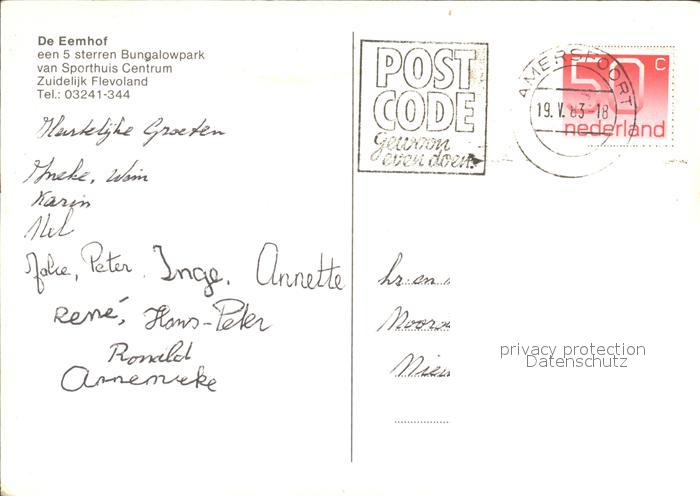 De Eemhof
een 5 sterren Bungalowpark
van Sporthuis Centrum
Zuidelijk Flevoland
Tel.: 03241-344
Hartelijke Groeten
Ineke, Wim
Karin
Nel
Peter. Inge. Annette
René, Hans-Peter
Ronald
Annemieke
POST
CODE
gewoon
even doen.
AMERSFOORT
19.V.83-18
50 c
nederland
hr en
privacy protection
Datenschutz